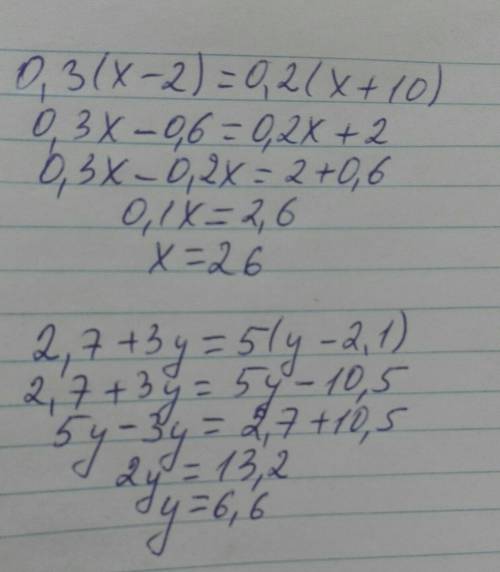 0,3(x-2)=0,2(x+10)
0,3x-0,6=0,2x+2
0,3x-0,2x=2+0,6
0,1x=2,6
x=26
2,7+3y=5(y-2,1)
2,7+3y=5y-10,5
5y-3y=2,7+10,5
2y=13,2
y=6,6